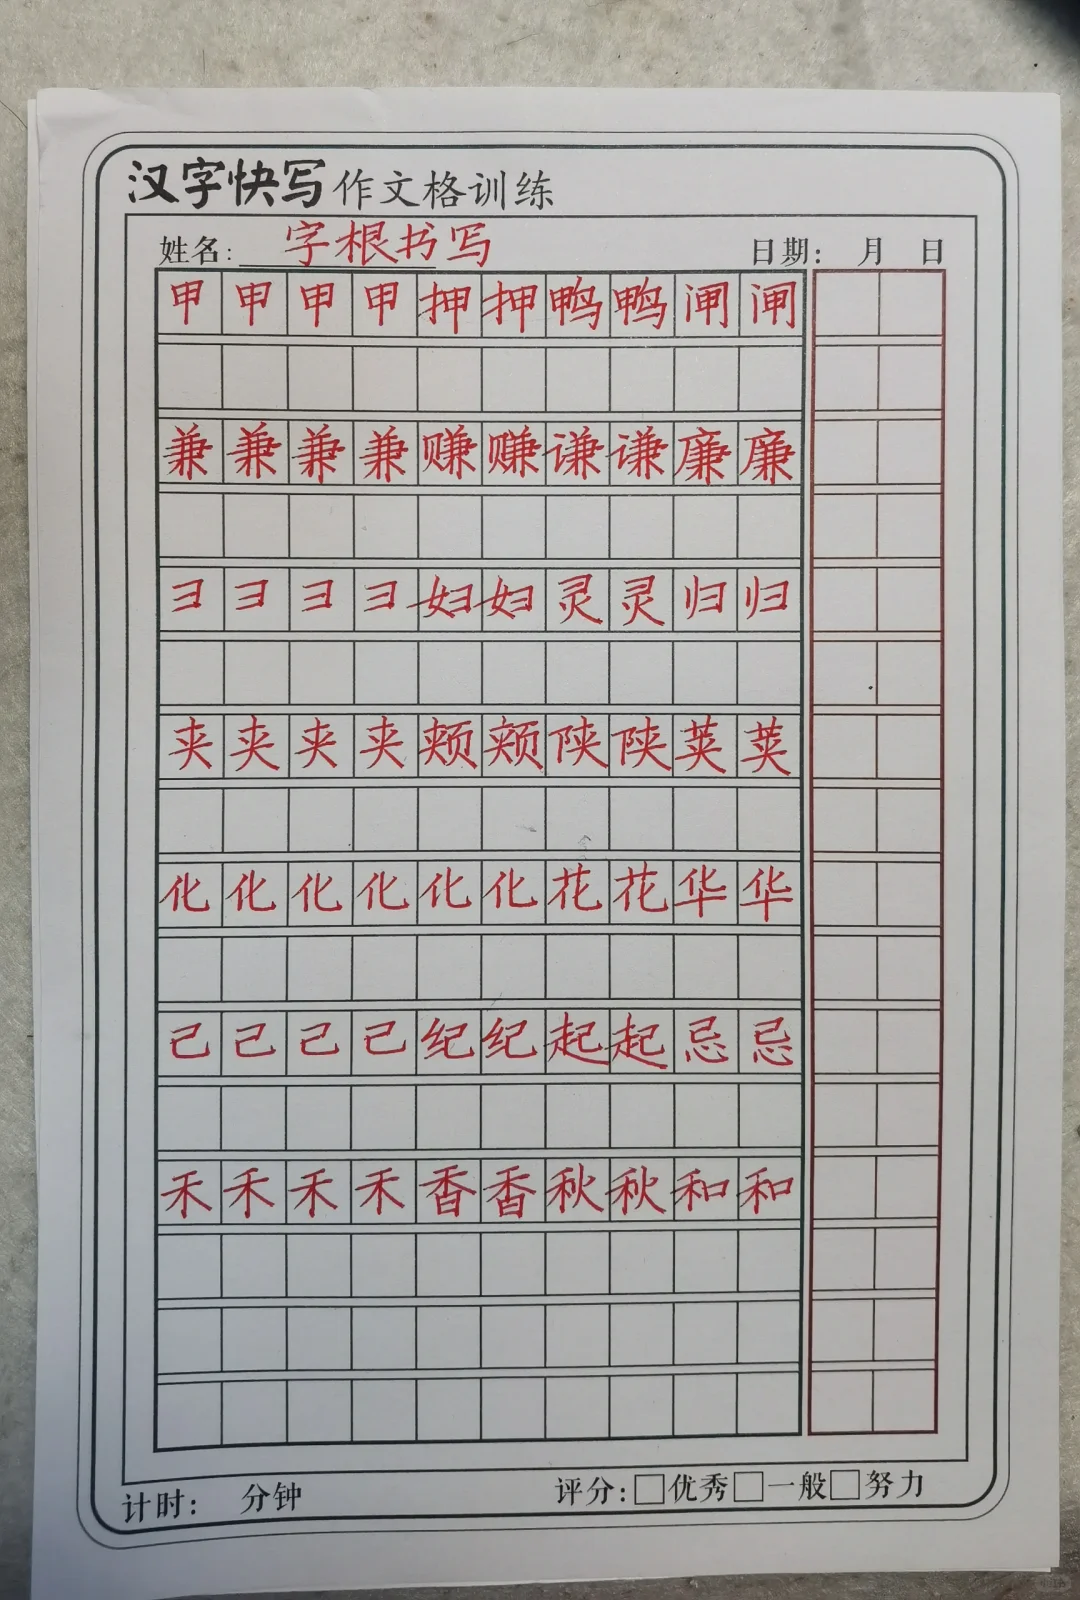 汉字快写作文格训练
姓名: 字根书写 日期: 月 日
甲甲甲甲押押鸭鸭闸闸
兼兼兼兼赚赚谦谦廉廉
彐彐彐彐妇妇灵灵归归
夹夹夹夹颊颊陕陕荚荚
化化化化化化花花华华
己己己己纪纪起起忌忌
禾禾禾禾香香秋秋和和
计时: 分钟 评分:□优秀□一般□努力